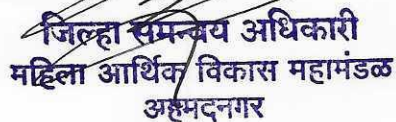 जिल्हा समन्वय अधिकारी
महिला आर्थिक विकास महामंडळ
अहमदनगर